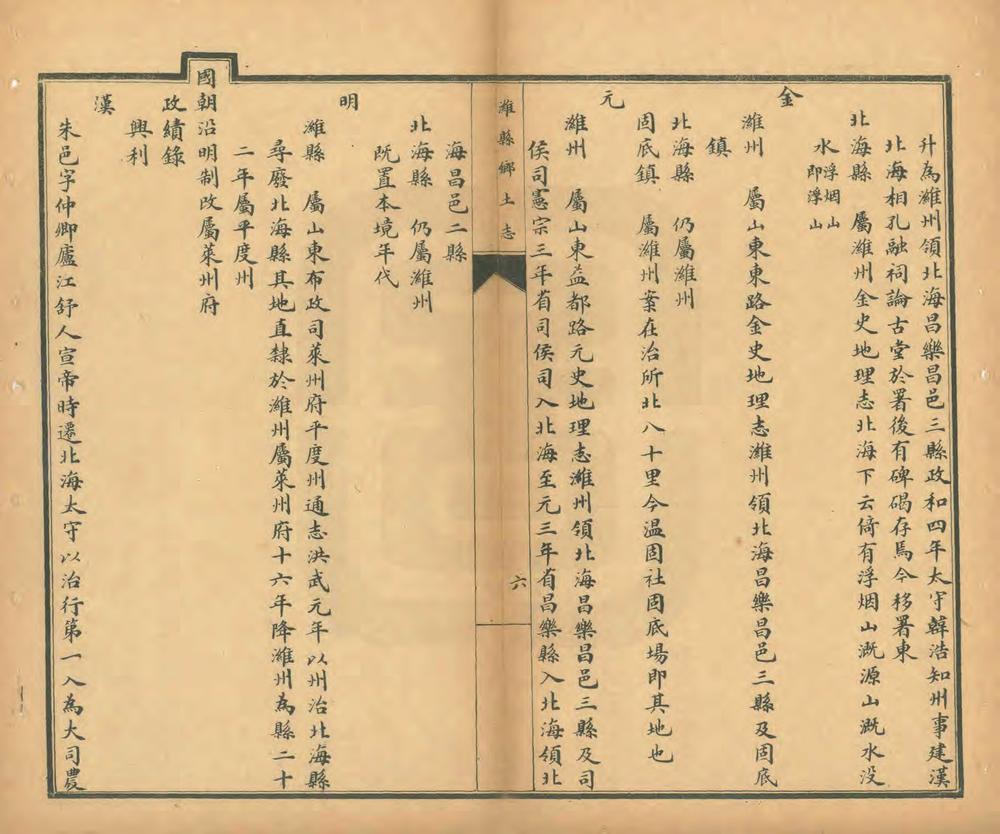 升為濰州領北海昌樂昌邑三縣政和四年太守韓浩知州事建漢
北海相孔融祠論古堂於署後有碑碣存焉今移署東
北海縣　屬濰州金史地理志北海下云倚有浮烟山溉源山溉水没
水浮烟山
即浮山
金
濰州　屬山東東路金史地理志濰州領北海昌樂昌邑三縣及固底
鎮
北海縣　仍屬濰州
固底鎮　屬濰州案在治所北八十里今温固社固底場即其地也
元
濰州　屬山東益都路元史地理志濰州領北海昌樂昌邑三縣及司
侯司憲宗三年省司侯司入北海至元三年省昌樂縣入北海領北
濰縣鄉土志
六
海昌邑二縣
北海縣　仍屬濰州
既置本境年代
明
濰縣　屬山東布政司萊州府平度州通志洪武元年以州治北海縣
尋廢北海縣其地直隸於濰州屬萊州府十六年降濰州為縣二十
二年屬平度州
國朝沿明制改屬萊州府
政績錄
興利
漢
朱邑字仲卿廬江舒人宣帝時遷北海太守以治行第一入為大司農